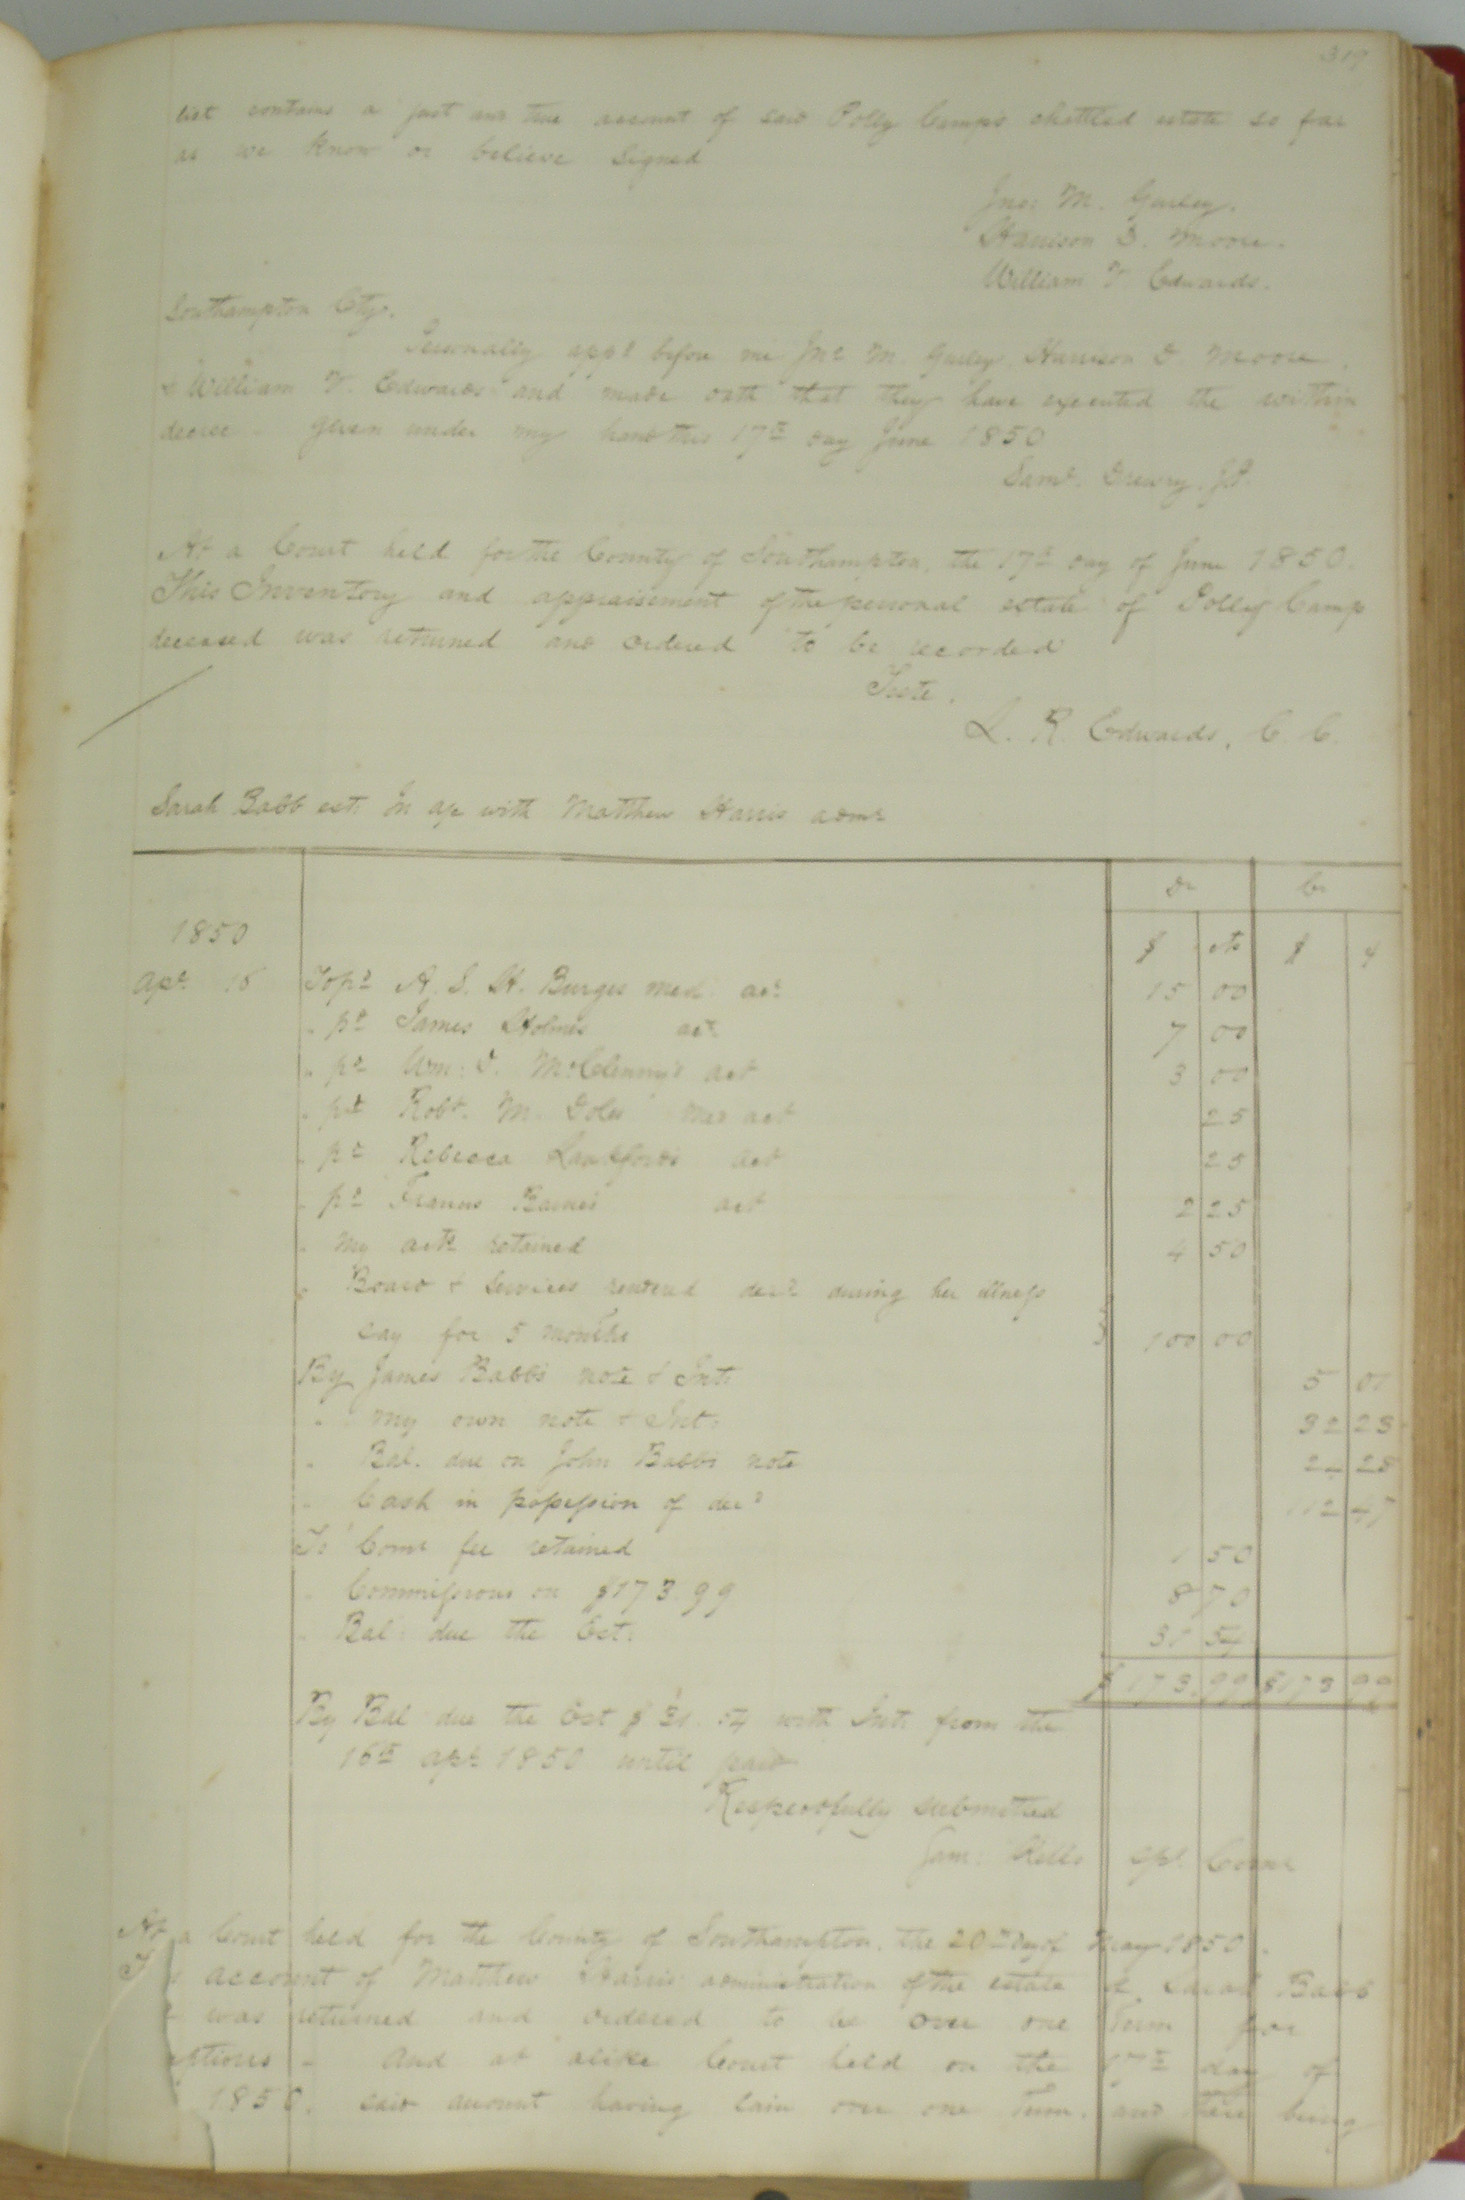 309
list contains a just and true account of said Polly Camps chattled estate so far
as we know or believe Signed
Jno: M. Gurley.
Harrison D. Moore.
William T. Edwards.
Southampton Cty.
Personally appd before me Jno M. Gurley, Harrison D. Moore,
& William T. Edwards and made oath that they have executed the within
decree. given under my hand this 17th day June 1850
Saml. Drewry, JP.
At a Court held for the County of Southampton, the 17th day of June 1850.
This Inventory and appraisement of the personal estate of Polly Camp
deceased was returned and ordered to be recorded
Teste.
L. R. Edwards, C. C.
Sarah Babb est: In a/c with Matthew Harris admr
Dr Cr
1850 $ cts $ ¢
Apl 16 To pd A. S. H. Burges med. act 15 00
" pd James Holmes act 7 00
" pd Wm: D. McClenny's act 3 00
" pd Robt. M. med act 25
" pd Rebecca Lankford's act 25
" pd Barnes act 2 25
" My acts retained 4 50
" Board & Services rendered decd during her illness
say for 5 months 100 00
By James Babbs note & Int: 5 01
" my own note & Int: 32 23
" Bal. due on John Babbs note 24 28
" Cash in possession of decd 112 47
To Comr fee retained 1 50
" Commissions on $173.99 8 70
" Bal: due the Est: 31 54
$ 173.99 $173 99
By Bal due the Est $ 31.54 with Int: from the
16th apl 1850 until paid
Respectfully submitted
Kello Comr
At a Court held for the County of Southampton, the 20th Day of May 1850.
account of Matthew Harris administration of the estate of Sarah Babb
was returned and ordered to lie over one Term for
ptions - And at alike Court held on the 17th day of
1850. said account having lain over one Term. and there being